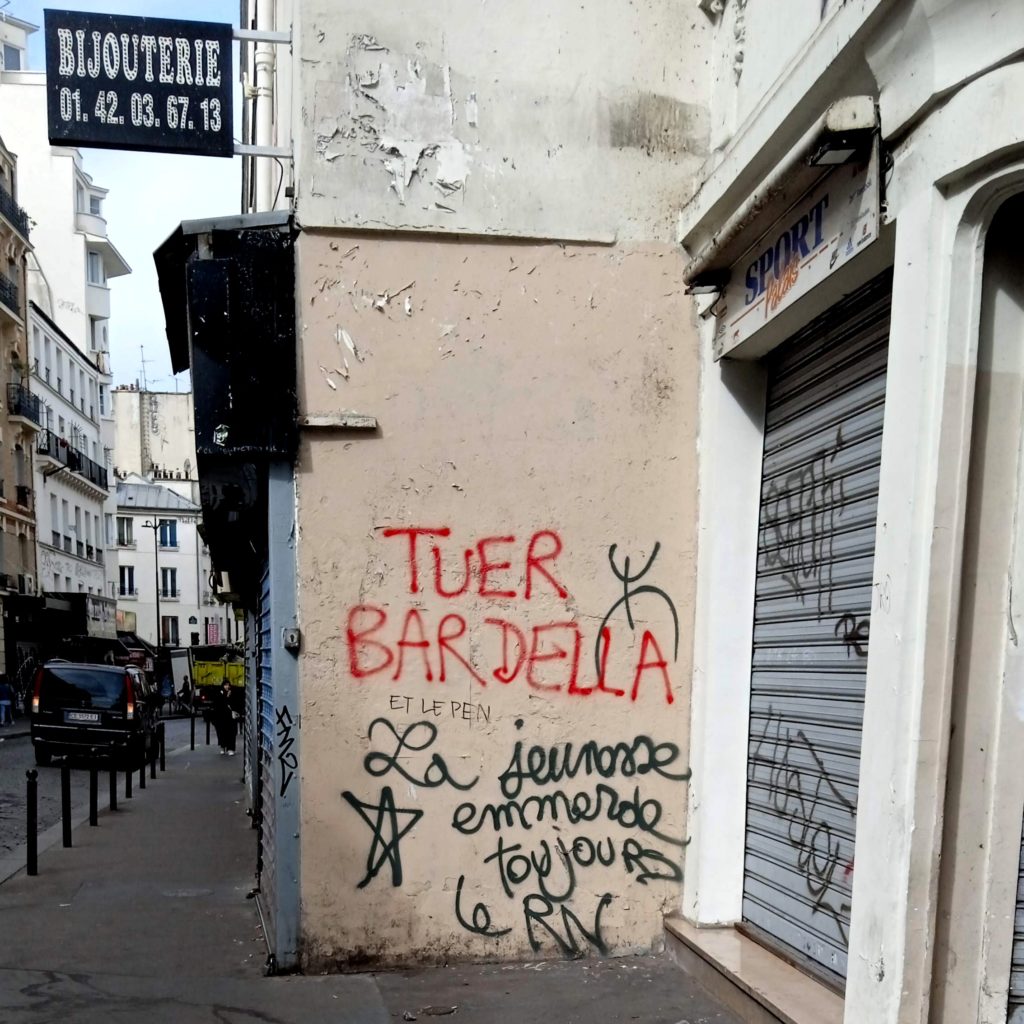 BIJOUTERIE
01. 42. 03. 67. 13
SPORT
TUER
BARDELLA
ET LE PEN
La jeunesse
emmerde
toujours
le RN